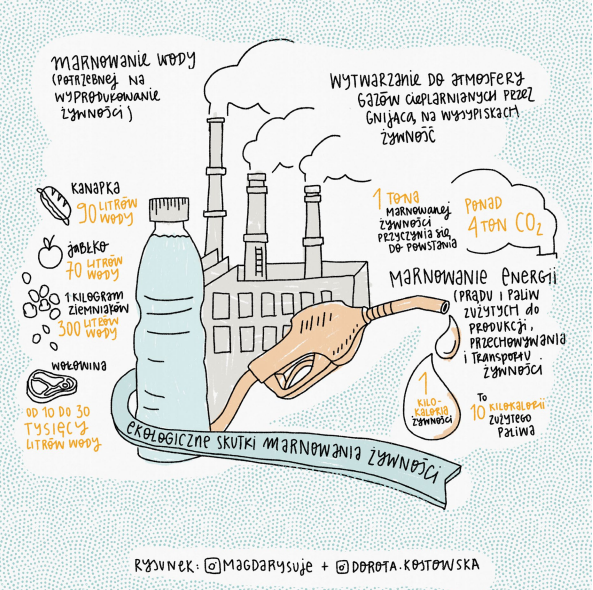 MARNOWANIE WODY
(POTRZEBNEJ NA
WYPRODUKOWANIE
ŻYWNOŚCI)
KANAPKA
90 LITRÓW
WODY
JABŁKO
70 LITRÓW
WODY
1 KILOGRAM
ZIEMNIAKÓW
300 LITRÓW
WODY
WOŁOWINA
OD 10 DO 30
TYSIĘCY
LITRÓW WODY
WYTWARZANIE DO ATMOSFERY
GAZÓW CIEPLARNIANYCH PRZEZ
GNIJĄCĄ, NA WYSYPISKACH
ŻYWNOŚĆ
1 TONA
MARNOWANEJ
ŻYWNOŚCI
PRZYCZYNIA SIĘ
DO POWSTANIA
PONAD
4 TON CO2
MARNOWANIE ENERGII
(PRĄDU I PALIW
ZUŻYTYCH do
PRODUKCJI,
PRZECHOWYWANIA
i TRANSPORTU
ŻYWNOŚCI
1
KILO-
KALORIA
ŻYWNOŚCI
TO
10 KILOKALORII
ZUŻYTEGO
PALIWA
EKOLOGICZNE SKUTKI MARNOWANIA ŻYWNOŚCI
RYSUNEK: MAGDARYSUJE + DOROTA.KOSTOWSKA